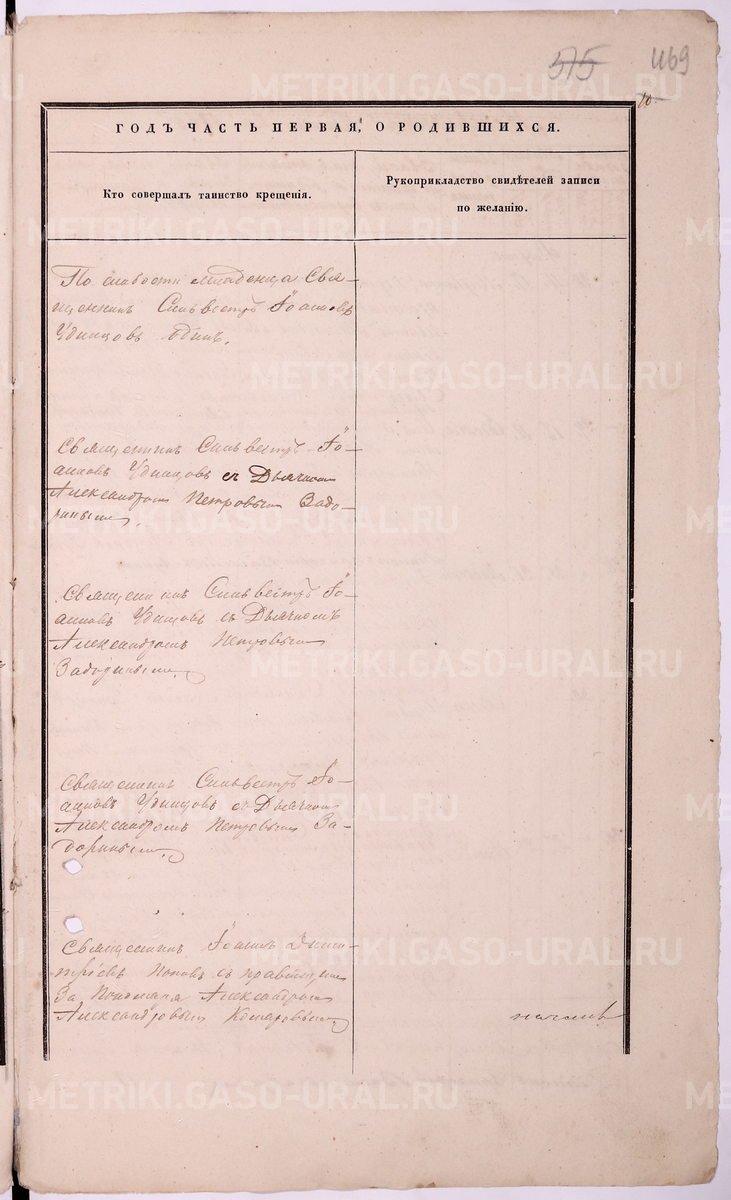 575 1169
10
ГОДЪ ЧАСТЬ ПЕРВАЯ, О РОДИВШИХСЯ.
Кто совершалъ таинство крещенія.
Рукоприкладство свидѣтелей записи
по желанію.
По слабости младенца Свя-
щенникъ Сильвестръ Іоанновъ
Удинцовъ одинъ.
Священникъ Сильвестръ Іо-
анновъ Удинцовъ съ Дьячкомъ
Александромъ Петровымъ Задо-
ринымъ.
Священникъ Сильвестръ Іо-
анновъ Удинцовъ съ Дьячкомъ
Александромъ Петровымъ
Задоринымъ.
Священникъ Сильвестръ Іо-
анновъ Удинцовъ съ Дьячкомъ
Александромъ Петровымъ За-
доринымъ.
Священникъ Іоаннъ Дими-
тріевъ Поповъ съ
За Александромъ
Александровымъ Комаровымъ.
METRIKI.GASO-URAL.RU